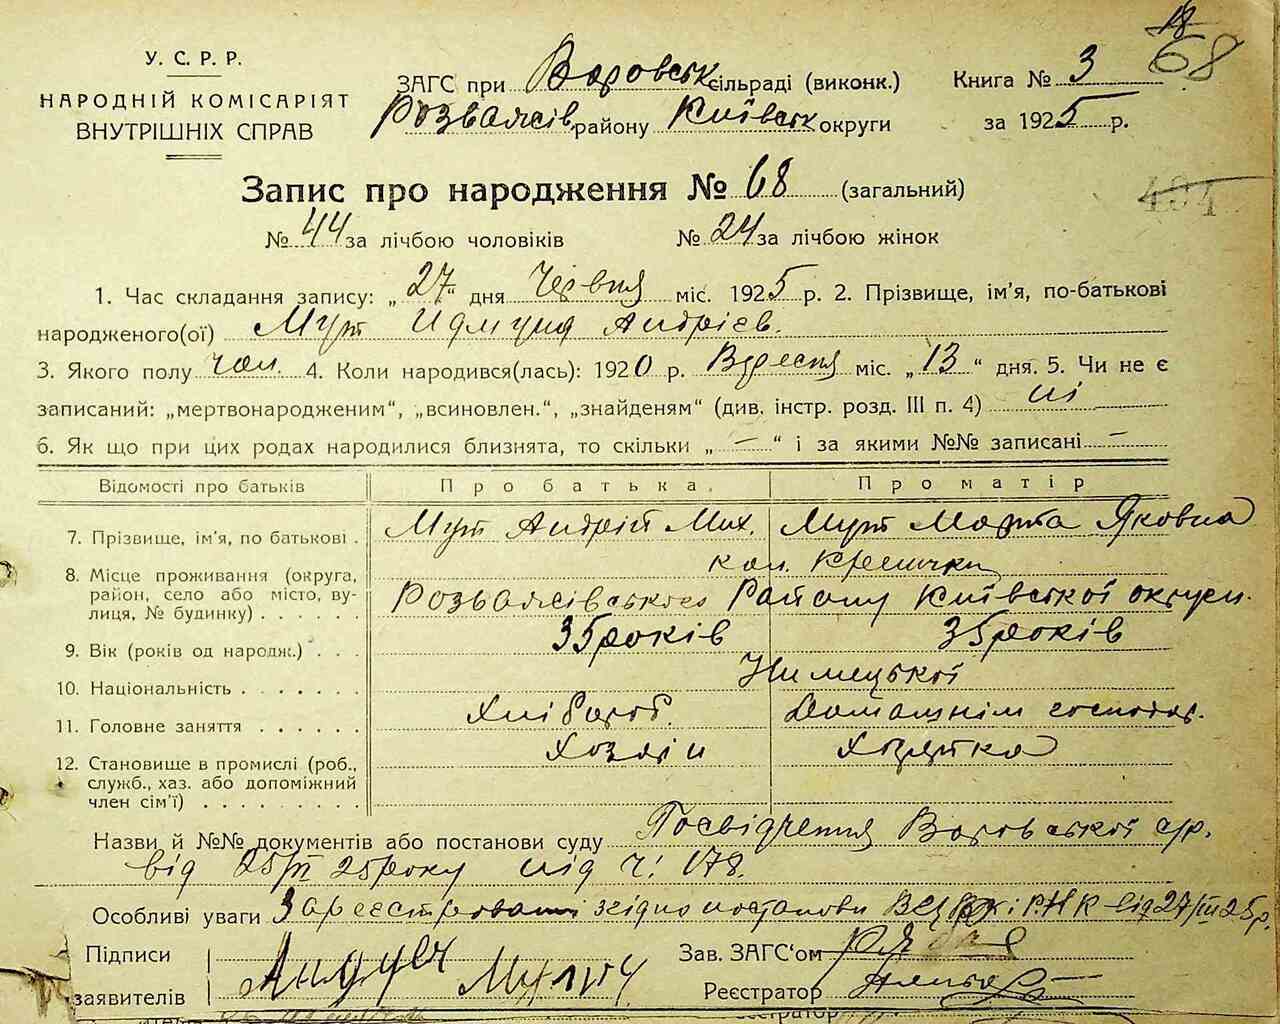 18
68
У. С. Р. Р.
НАРОДНІЙ КОМІСАРІЯТ
ВНУТРІШНІХ СПРАВ
ЗАГС при Воровськ сільраді (виконк.)
Розважів району Київськ округи
Книга № 3
за 1925 р.
Запис про народження № 68 (загальний)
494
№ 44 за лічбою чоловіків № 24 за лічбою жінок
1. Час складання запису: „27“ дня Червня міс. 1925 р. 2. Прізвище, ім’я, по-батькові
народженого(ої) Мут Идмунд Андрієв.
3. Якого полу чол. 4. Коли народився(лась): 1920 р. Вересня міс. „13“ дня. 5. Чи не є
записаний: „мертвонародженим“, „всиновлен.“, „знайденям“ (див. інстр. розд. III п. 4) ні
6. Як що при цих родах народилися близнята, то скільки „—“ і за якими №№ записані —
Відомості про батьків Про батька. Про матір
7. Прізвище, ім’я, по батькові . Мут Андрій Мих. Мут Марта Яковна
8. Місце проживання (округа, район, село або місто, вулиця, № будинку) . . . . . .
кол.
Розважівського Району Київської округи.
9. Вік (років од народж.) . . . 35 років 35 років
10. Національність . . . . . . . Нимецької
11. Головне заняття . . . . . . Хлібороб. Домашнім господар.
12. Становище в промислі (роб., служб., хаз. або допоміжний член сім’ї) . . . . . . . . . Хозяін Хозяйка
Назви й №№ документів або постанови суду Посвідчення Воровської с/р.
від 25/VI 25 року під ч: 178.
Особливі уваги Зареєстрований згідно постанови ВУЦВК і РНК від 27/III 25 р.
Підписи
заявителів
Зав. ЗАГС‘ом
Реєстратор